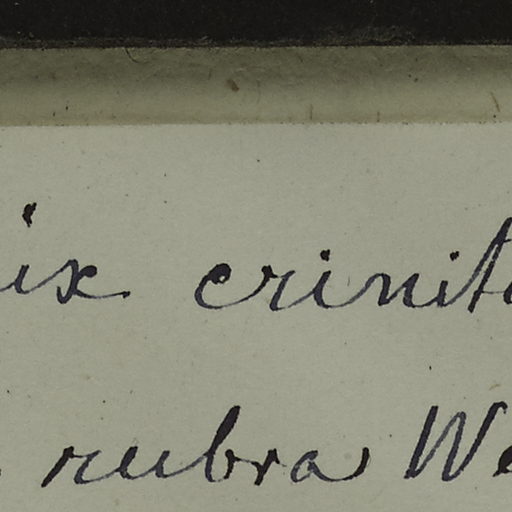 ix crinit
rubra We